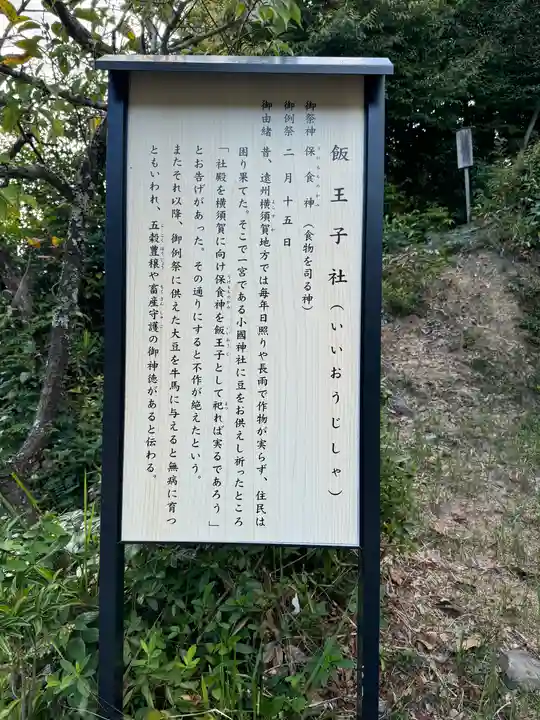 飯王子社(いいおうじしゃ)
御祭神 保食神(食物を司る神)
御例祭 二月十五日
御由緒 昔、遠州横須賀地方では毎年日照りや長雨で作物が実らず、住民は
困り果てた。そこで一宮である小國神社に豆をお供えし祈ったところ
「社殿を横須賀に向け保食神を飯王子として祀れば実るであろう」
とお告げがあった。その通りにすると不作が絶えたという。
またそれ以降、御例祭に供えた大豆を牛馬に与えると無病に育つ
ともいわれ、五穀豊穣や畜産守護の御神徳があると伝わる。